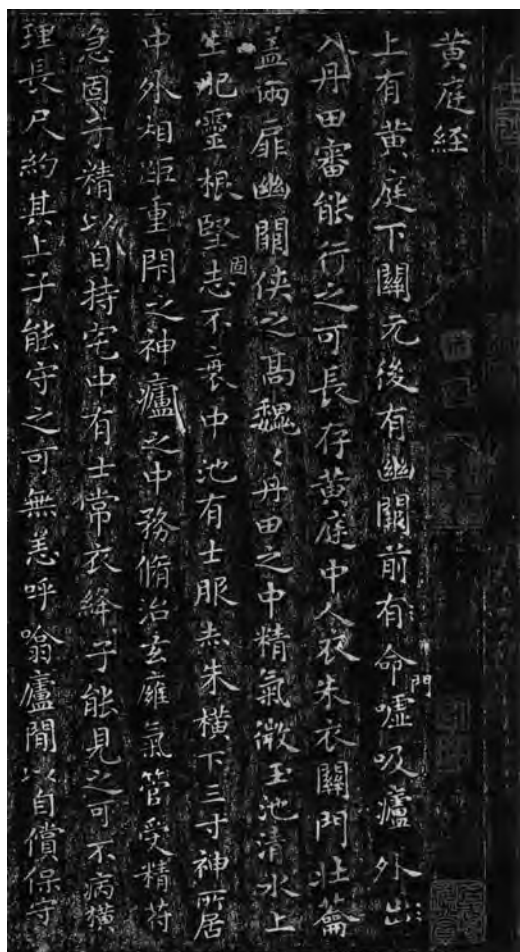 黄庭經
上有黄庭下關元後有幽關前有命門嘘吸廬外出
入丹田審能行之可長存黄庭中人衣朱衣關門壮籥
盖兩扉幽關侠之髙魏〻丹田之中精氣微玉池清水上
生肥靈根堅固志不衰中池有士服赤朱横下三寸神所居
中外相距重閇之神廬之中務脩治玄廱氣管受精符
急固子精以自持宅中有士常衣絳子能見之可不病横
理長尺約其上子能守之可無恙呼噏廬間以自償保守